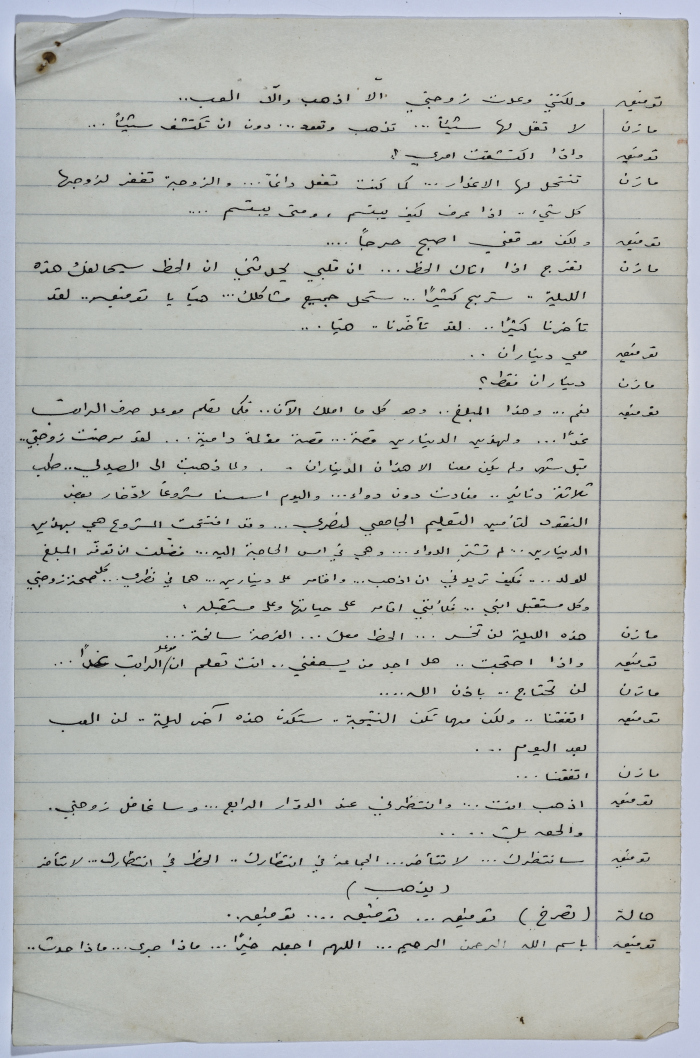 توفيق ولكنني وعدت زوجتي ألّا اذهب وألّا العب..
مازن لا تقل لها شيئاً... تذهب وتعود... دون ان تكتشف شيئاً...
توفيق واذا اكتشفت امري؟
مازن تنتحل لها الاعذار... كما كنت تفعل دائماً... والزوجة تغفر لزوجها
كل شيء.. اذا عرف كيف يبتسم، ومتى يبتسم....
توفيق ولكن موقفي اصبح حرجاً....
مازن تفرج اذا اتاك الحظ... ان قلبي يحدثني ان الحظ سيحالفك هذه
الليلة.. ستربح كثيراً... ستحل جميع مشاكلك... هيّا يا توفيق.. لقد
تأخرنا كثيراً... لقد تأخّرنا.. هيّا...
توفيق معي ديناران..
مازن ديناران فقط؟
توفيق نعم... وهذا المبلغ.. وهو كل ما املك الآن.. فكما تعلم موعد صرف الراتب
غداً... ولهذين الدينارين قصة... قصة مؤلمة دامية... لقد مرضت زوجتي..
قبل شهر ولم يكن معنا الا هذان الديناران.. ولما ذهبت الى الصيدلي.. طلب
ثلاثة دنانير.. فعادت دون دواء... واليوم اسسنا مشروعاً لادّخار بعض
النقود لتأمين التعليم الجامعي لنضري... وقد افتتحت المشروع هي بهذين
الدينارين... لم تشترِ الدواء... وهي في امس الحاجة اليه... فضّلت ان توفّر المبلغ
للولد... فكيف تريدني ان اذهب... واقامر على دينارين... هما في نظري... كل صحة زوجتي
وكل مستقبل ابني.. فكأنني اقامر على حياتها وعلى مستقبله.
مازن هذه الليلة لن تخسر... الحظ معك... الفرصة سانحة...
توفيق واذا احتجت.. هل اجد من يسعفني.. انت تعلم ان موعد الراتب غداً...
مازن لن تحتاج.. باذن الله....
توفيق اتفقنا.. ولكن مهما تكن النتيجة.. ستكون هذه آخر ليلة.. لن العب
بعد اليوم...
مازن اتفقنا...
توفيق اذهب انت... وانتظرني عند الدوّار الرابع... وسأغافل زوجتي.
والحق بك....
توفيق سانتظرك... لا تتأخر... الجماعة في انتظارك.. الحظ في انتظارك.. لا تتأخر
(يذهب)
هالة (تصرخ) توفيق... توفيق.... توفيق..
توفيق باسم الله الرحمن الرحيم... اللهم اجعله خيراً... ماذا جرى... ماذا حدث..